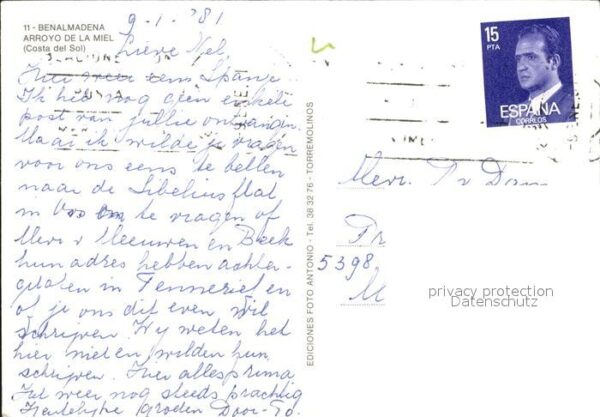 11 - BENALMADENA
ARROYO DE LA MIEL
(Costa del Sol)
9-1-'81
Lieve Nel,
Hier weer eens Spanje
Ik heb nog geen enkele
post van jullie ontvangen.
Maar ik wilde je vragen
voor ons eens te bellen
naar de Sibeliusflat
in Oss om te vragen of
Mevr v Meeuwen en Beek
hun adres hebben achter-
gelaten in Tenneriet en
of je ons dit even wil
schrijven. Wij weten het
hier niet en wilden hun
schrijven. Hier alles prima
Het weer nog steeds prachtig
Hartelijke Groeten Door-To.
EDICIONES FOTO ANTONIO - Tel. 38 3276 - TORREMOLINOS
15
PTA
ESPAÑA
CORREOS
Mevr.
5398
privacy protection
Datenschutz